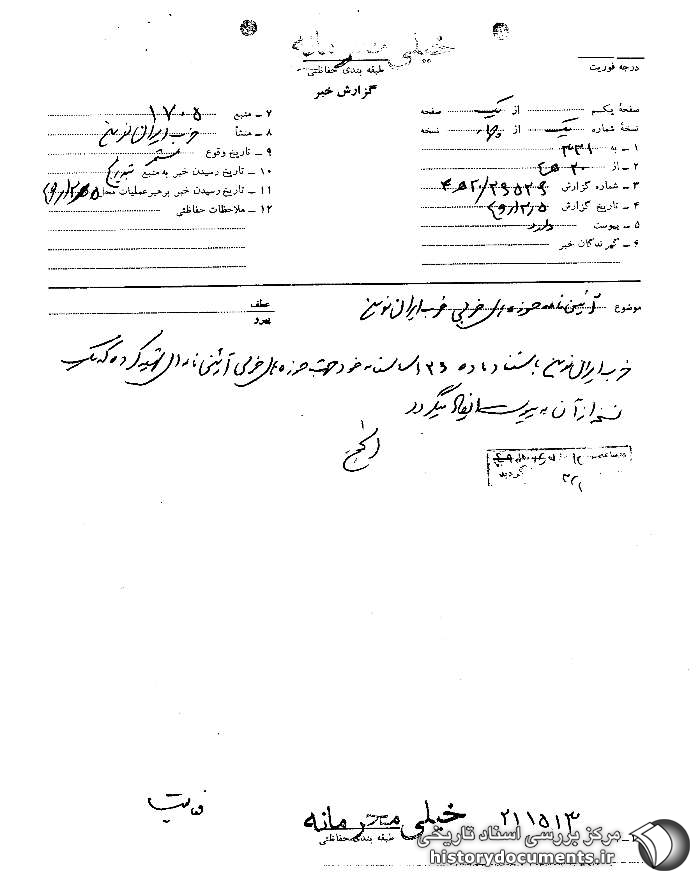 خیلی محرمانه
طبقه بندی حفاظتی
درجه فوریت
گزارش خبر
صفحهٔ یکم از یک صفحه
نسخهٔ شماره یک از چهار نسخه
۱ ـ به ۳۴۱
۲ ـ از ۲۰ ه
۳ ـ شماره گزارش
۴ ـ تاریخ گزارش
۵ ـ پیوست دارد
۶ ـ گیرندگان خبر
۷ ـ منبع ۱۷۰۵
۸ ـ منشأ حزب ایران نوین
۹ ـ تاریخ وقوع
۱۰ ـ تاریخ رسیدن خبر به منبع
۱۱ ـ تاریخ رسیدن خبر برهبر عملیات محل
۱۲ ـ ملاحظات حفاظتی
موضوع آئین نامه حوزه های حزبی حزب ایران نوین
عطف
پیرو
حزب ایران نوین باستناد ماده اساسنامه خود جهت حوزه های حزبی آئین نامه ای تهیه کرده که یک
نسخه از آن به پیوست ایفاد میگردد
ساعت
گردید
خیلی محرمانه
طبقه بندی حفاظتی
۲۱۱۵۱۳
مرکز بررسی اسناد تاریخی
historydocuments.ir